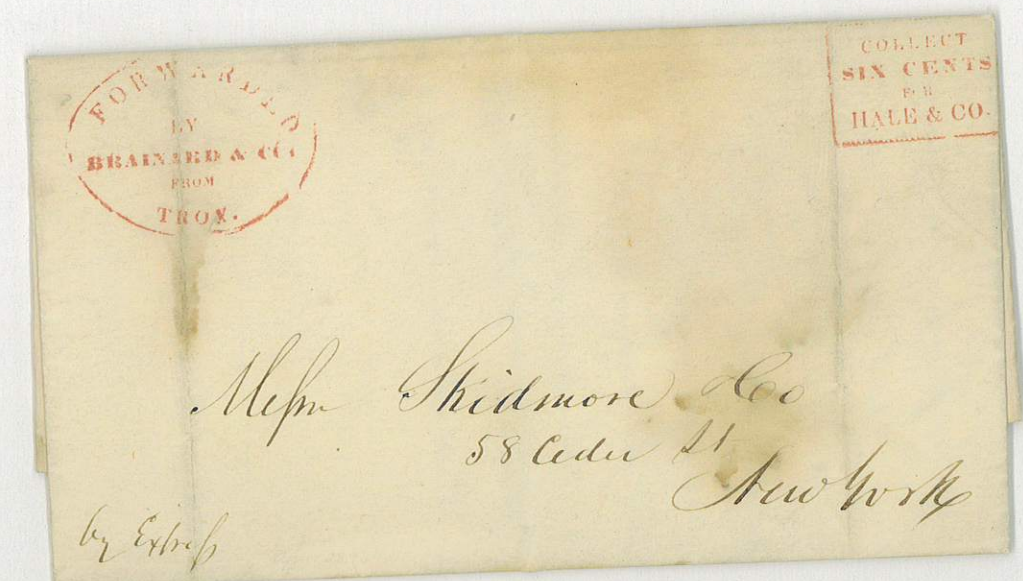 FORWARDED
BY
BRAINARD & CO.
FROM
TROY.
COLLECT
SIX CENTS
FOR
HALE & CO.
Messrs Skidmore & Co
58 Ceder St
New York
by Express